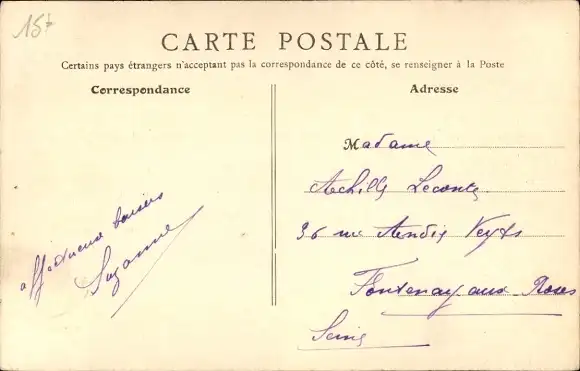 15f
CARTE POSTALE
Certains pays étrangers n'acceptent pas la correspondance de ce côté, se renseigner à la Poste
Correspondance
Adresse
affectueux baisers
Suzanne
Madame
Achille Lecomte
36 rue
Fontenay aux Roses
Seine